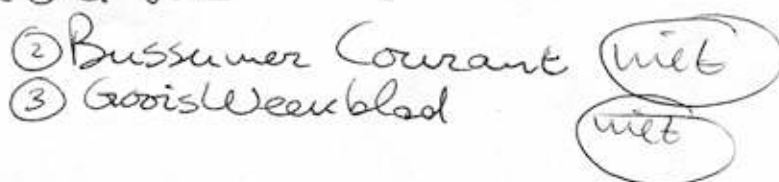 ② Bussumer Courant niet
③ GooisWeekblad niet